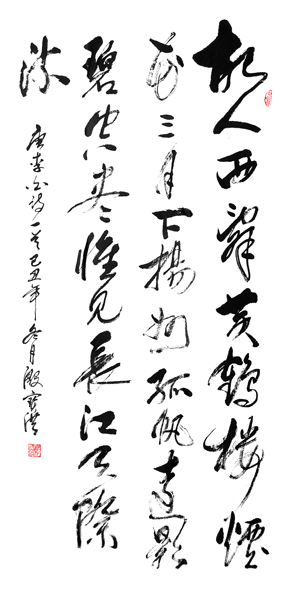 故人西辭黄鶴樓煙
花三月下揚州孤帆遠影
碧空盡惟見長江天際
流
唐李白詩一首己丑年冬月殷